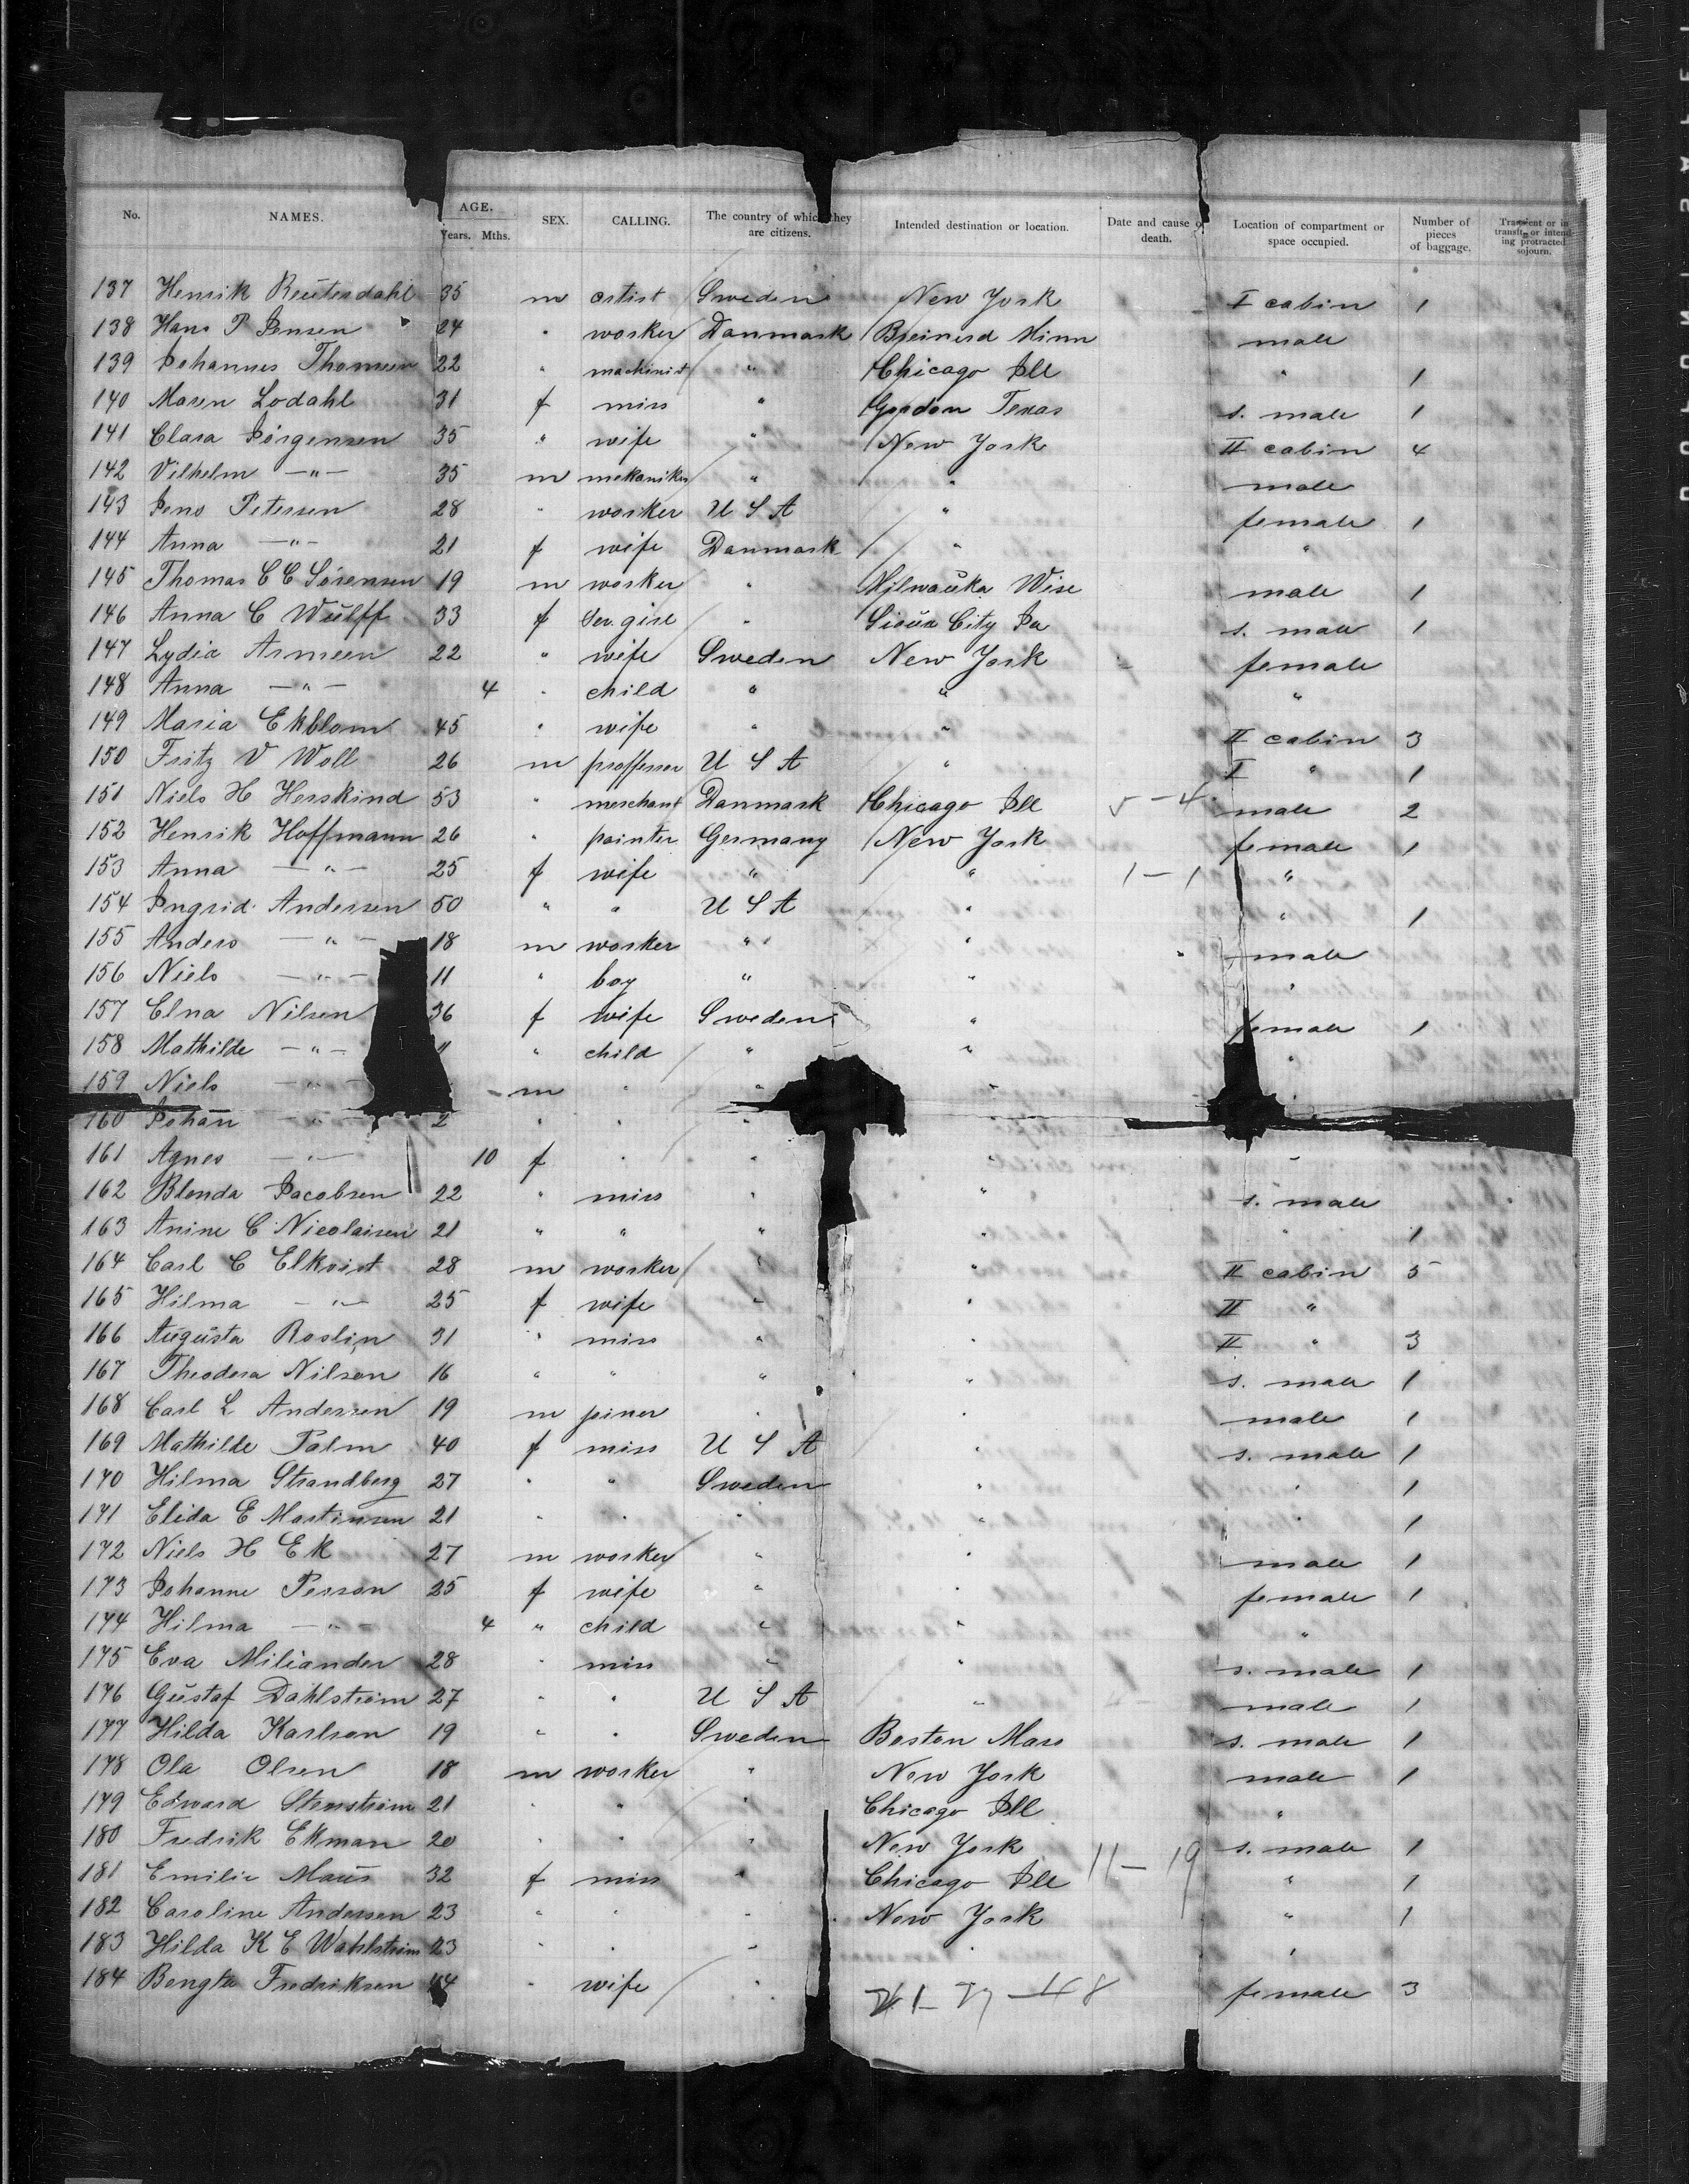 No. NAMES. AGE. Years. Mths. SEX. CALLING. The country of which they are citizens. Intended destination or location. Date and cause of death. Location of compartment or space occupied. Number of pieces of baggage. Transient or in transit, or intending protracted sojourn.
137 Henrik Reüterdahl 35 m artist Sweden New York I cabin 1
138 Hans P Jensen 24 " worker Danmark Breinerd Minn male
139 Johannes Thomsen 22 " machinist " Chicago Ill " 1
140 Maren Lodahl 31 f miss " Gordon Texas s. male 1
141 Clara Jörgensen 35 " wife " New York II cabin 4
142 Vilhelm —"— 35 m mekaniker " " male
143 Jens Petersen 28 " worker U S A " female 1
144 Anna —"— 21 f wife Danmark " "
145 Thomas C C Sörensen 19 m worker " Milwaüka Wisc male 1
146 Anna C Wülff 33 f ser. girl " Sioüx City Ia s. male 1
147 Lydia Armeen 22 " wife Sweden New York female
148 Anna —"— 4 " child " " "
149 Maria Ekblom 45 " wife " " II cabin 3
150 Fritz V Woll 26 m proffessor U S A " I " 1
151 Niels H Herskind 53 " merchant Danmark Chicago Ill 5-4 male 2
152 Henrik Hoffmann 26 " painter Germany New York female 1
153 Anna —"— 25 f wife " " 1-1 "
154 Ingrid Andersen 50 " " U S A " " 1
155 Anders —"— 18 m worker " " male
156 Niels —"— 11 " boy " " "
157 Elna Nilsen 36 f wife Sweden " female 1
158 Mathilde —"— " child " " "
159 Niels —"— m " " "
160 Johan —"— 2 " " "
161 Agnes —"— 10 f " " " "
162 Blenda Jacobsen 22 " miss " " s. male
163 Anine C Nicolaisen 21 " " " " " 1
164 Carl C Elkvist 28 m worker " " II cabin 5
165 Hilma —"— 25 f wife " " II "
166 Aügüsta Roslin 31 " miss " " II " 3
167 Theodora Nilson 16 " " " " s. male 1
168 Carl L Andersen 19 m joiner " " male 1
169 Mathilde Palm 40 f miss U S A " s. male 1
170 Hilma Strandberg 27 " " Sweden " " 1
171 Elida E Martinsen 21 " " " " " 1
172 Niels H Ek 27 m worker " " male 1
173 Johanne Person 25 f wife " " female 1
174 Hilma —"— 4 " child " " "
175 Eva Miliander 28 " miss " " s. male 1
176 Güstaf Dahlström 27 " " U S A " male 1
177 Hilda Karlson 19 " " Sweden Boston Mass s. male 1
178 Ola Olsen 18 m worker " New York male 1
179 Edward Stenström 21 " " " Chicago Ill "
180 Fredrik Ekman 20 " " " New York s. male 1
181 Emilie Maüs 32 f miss " Chicago Ill 11-19 " 1
182 Caroline Andersen 23 " " " New York " 1
183 Hilda K E Wahlström 23 " " " " "
184 Bengta Fredriksen 44 " wife " female 3